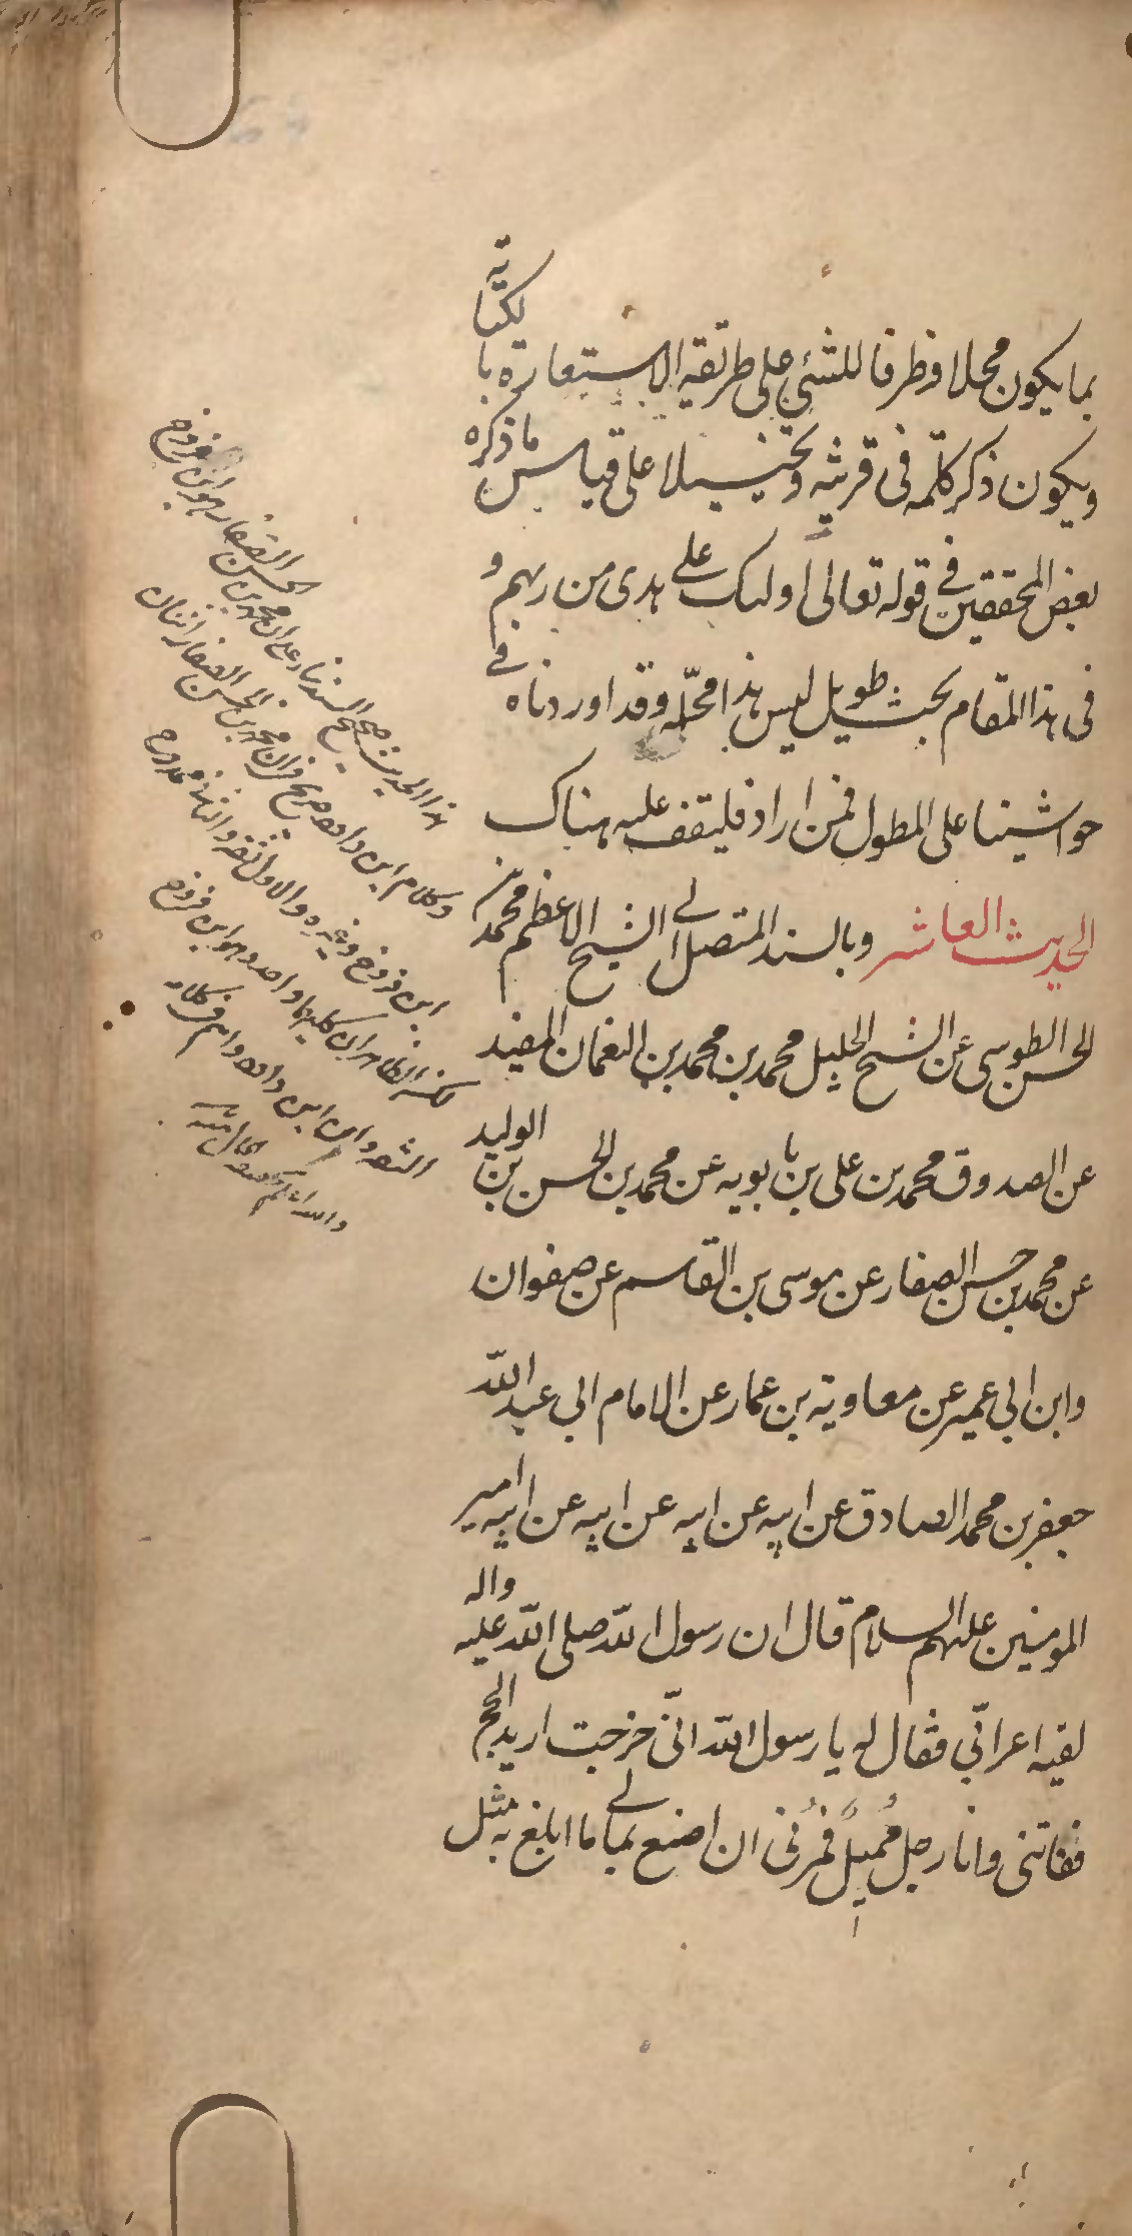 بما يكون محلا وظرفا للشئ على طريقة الاستعارة بالكناية
ويكون ذكر كلمة في قرينة وتخييلا على قياس ما ذكره
بعض المحققين في قوله تعالى اولئك على هدى من ربهم و
في هذا المقام بحث طويل ليس هذا محله وقد اوردناه في
حواشينا على المطول فمن اراد فليقف عليه هناك
الحديث العاشر وبالسند المتصل الى الشيخ الاعظم محمد بن
الحسن الطوسي عن الشيخ الجليل محمد بن محمد بن النعمان المفيد
عن الصدوق محمد بن على بن بابويه عن محمد بن الحسن بن الوليد
عن محمد بن حسن الصفار عن موسى بن القاسم عن صفوان
وابن ابي عمير عن معاوية بن عمار عن الامام ابي عبد الله
جعفر بن محمد الصادق عن ابيه عن ابيه عن ابيه عن ابيه امير
المومنين عليهم السلام قال ان رسول الله صلى الله عليه واله
لقيه اعرابي فقال له يا رسول الله اني خرجت اريد الحج
ففاتنى وانا رجل مميل فمرني ان اصنع بمالي ما ابلغ به مثل
هذا الحديث صحيح السند بناء على ان محمد بن الحسن الصفار هو ابن فروخ
وكلام ابن داود صريح في ان محمد بن الحسن الصفار اثنان
ابن فروخ وغيره والاول ثقة والثاني
لكن الظاهر ان كليهما واحد وهو ابن فروخ
الثقة وان ابن داود واهم في كلامه
والله اعلم بحقيقة الحال منه